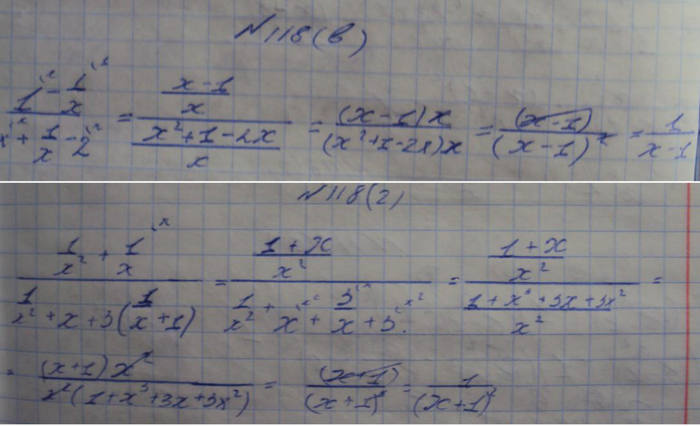 №118(в)
(1 - 1/x)/(x + 1/x - 2) = ((x-1)/x)/((x²+1-2x)/x) = ((x-1)x)/((x²+1-2x)x) = (x-1)/(x-1)² = 1/(x-1)
№118(г)
(1/x² + 1/x)/(1/x² + x + 3(1/x + 1)) = ((1+x)/x²)/(1/x² + x + 3/x + 3) = ((1+x)/x²)/((1+x³+3x+3x²)/x²) =
= ((x+1)x²)/(x²(1+x³+3x+3x²)) = (x+1)/(x+1)³ = 1/(x+1)²